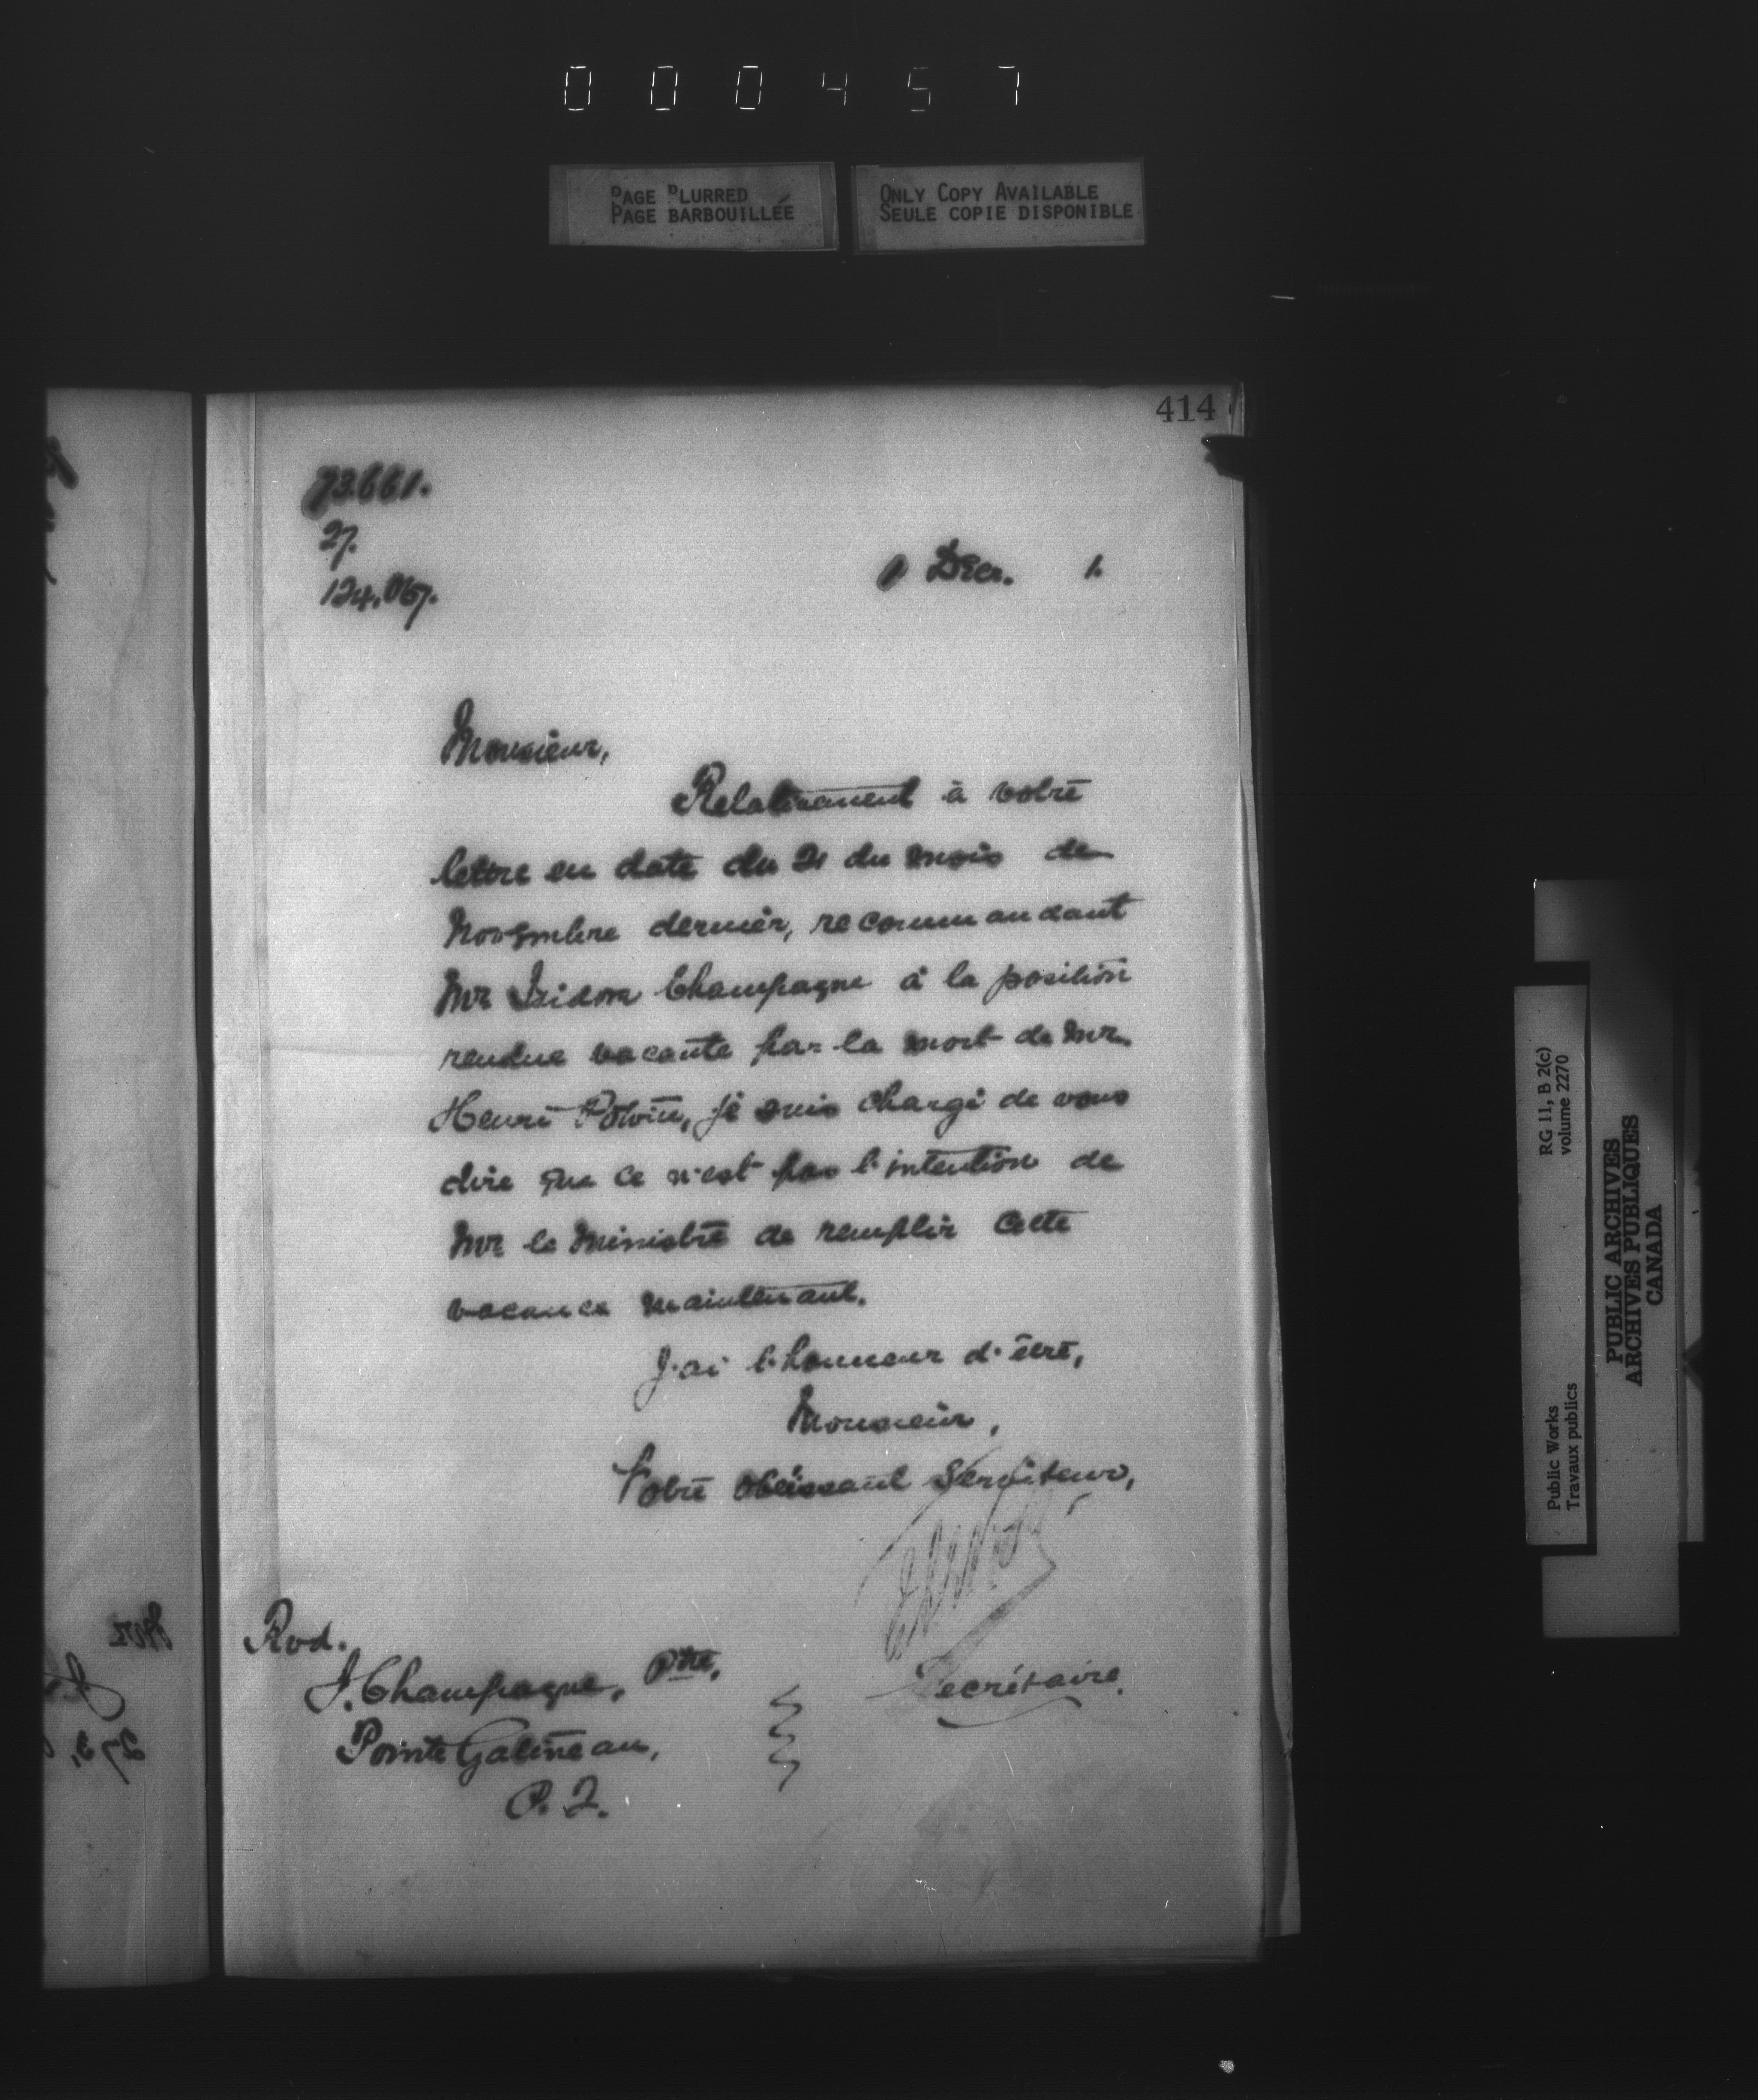 0 0 0 4 5 7
PAGE BLURRED
PAGE BARBOUILLÉE
ONLY COPY AVAILABLE
SEULE COPIE DISPONIBLE
414
73661.
27.
124.067.
1 Decr. 1.
Monsieur,
Relativement à votre
lettre en date du 21 du mois de
Novembre dernier, recommandant
Mr Isidore Champagne à la position
rendue vacante par la mort de Mr.
Henri Potvin, je suis chargé de vous
dire que ce n'est pas l'intention de
Mr le Ministre de remplir cette
vacance maintenant.
J'ai l'honneur d'être,
Monsieur,
Votre obéissant Serviteur,
Secrétaire.
Rvd.
J. Champagne, Ptre,
Pointe Gatineau,
P. Q.
RG 11, B 2(c)
volume 2270
Public Works
Travaux publics
PUBLIC ARCHIVES
ARCHIVES PUBLIQUES
CANADA